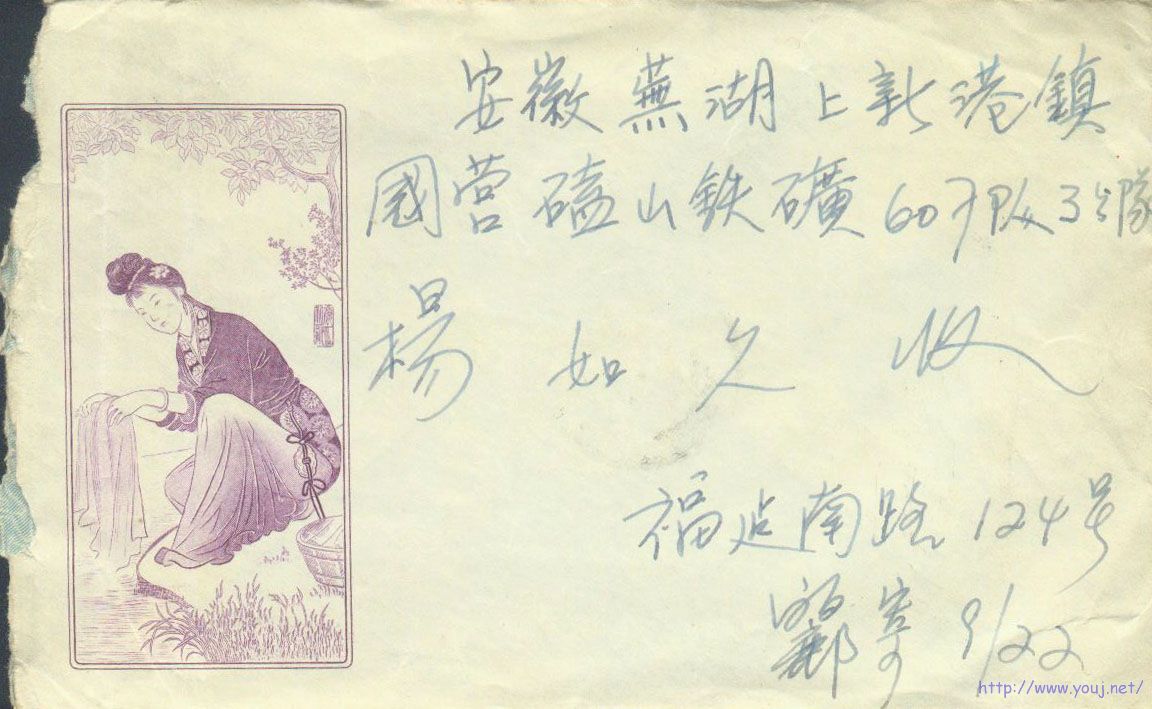 安徽蕪湖上新港鎮
國营磕山鉄礦60中队3分隊
楊如久收
福建南路124号
寄9/22
http://www.youj.net/